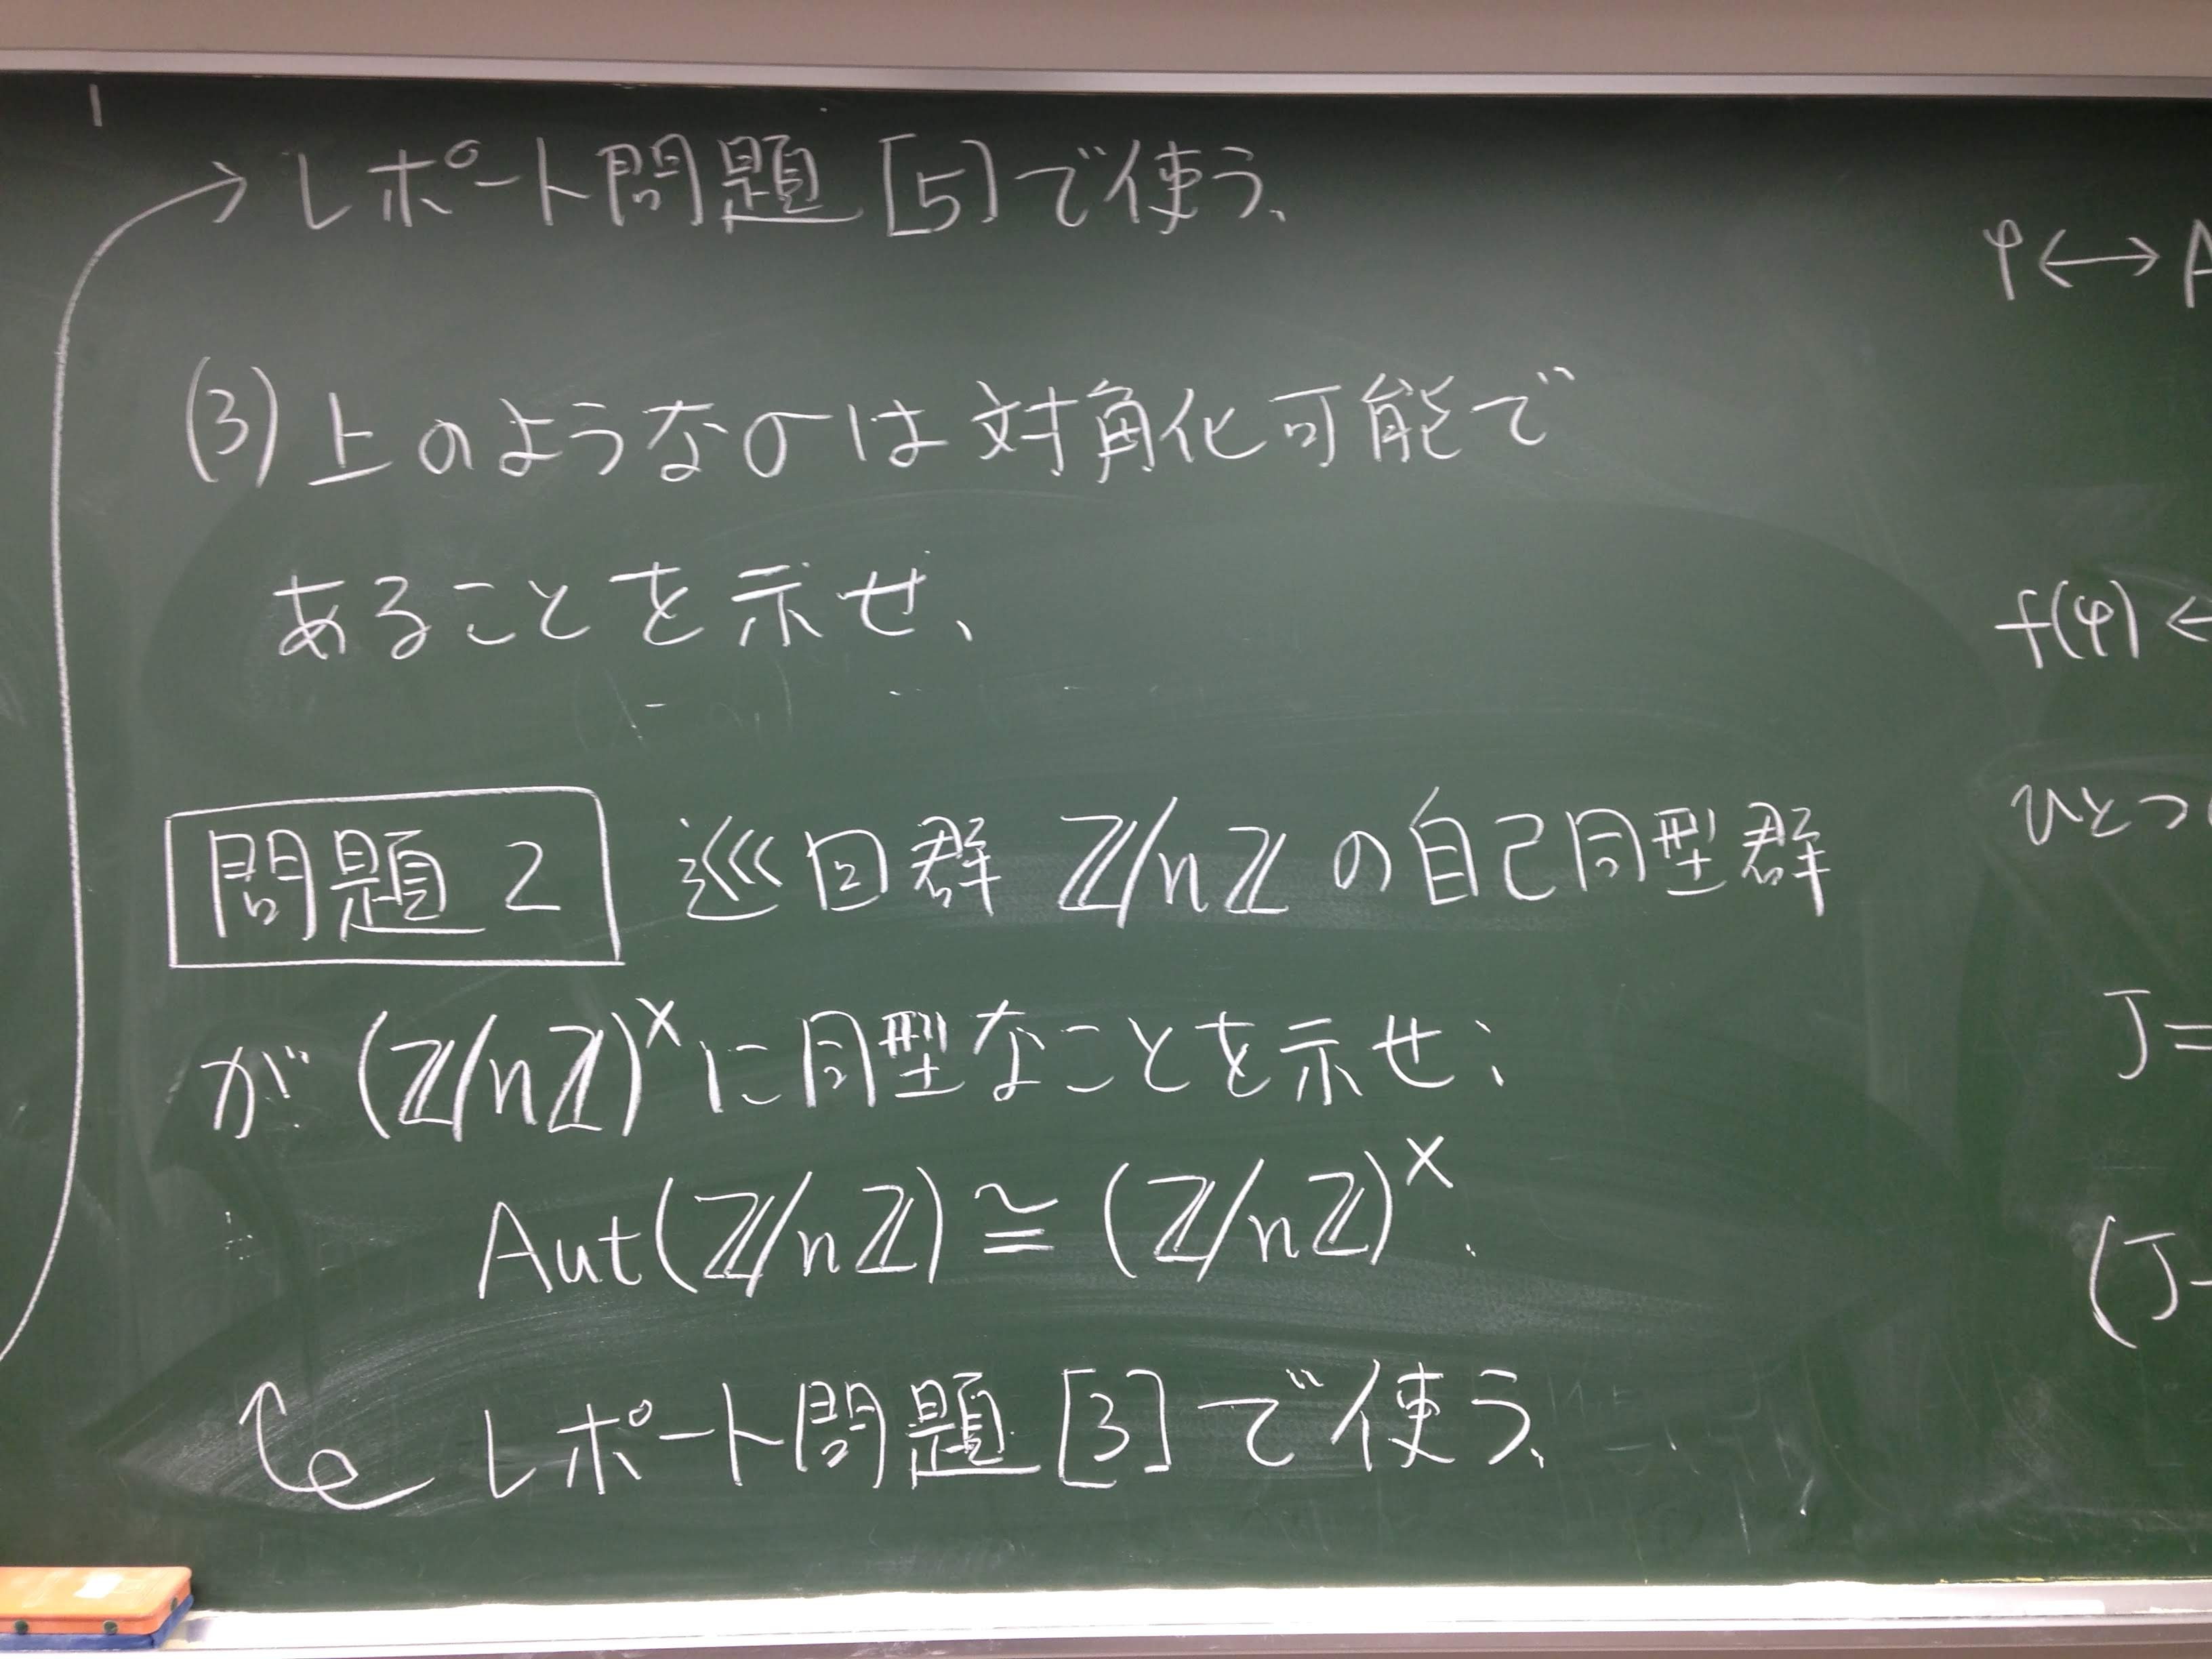 →レポート問題[5]で使う、
(3)上のようなσは対角化可能で
あることを示せ、
問題2 巡回群 ℤ/nℤ の自己同型群
が (ℤ/nℤ)^× に同型なことを示せ:
Aut(ℤ/nℤ) ≅ (ℤ/nℤ)^×.
レポート問題[3]で使う、
φ ↔ A
f(φ) ←
ひとつ
J =
(J-